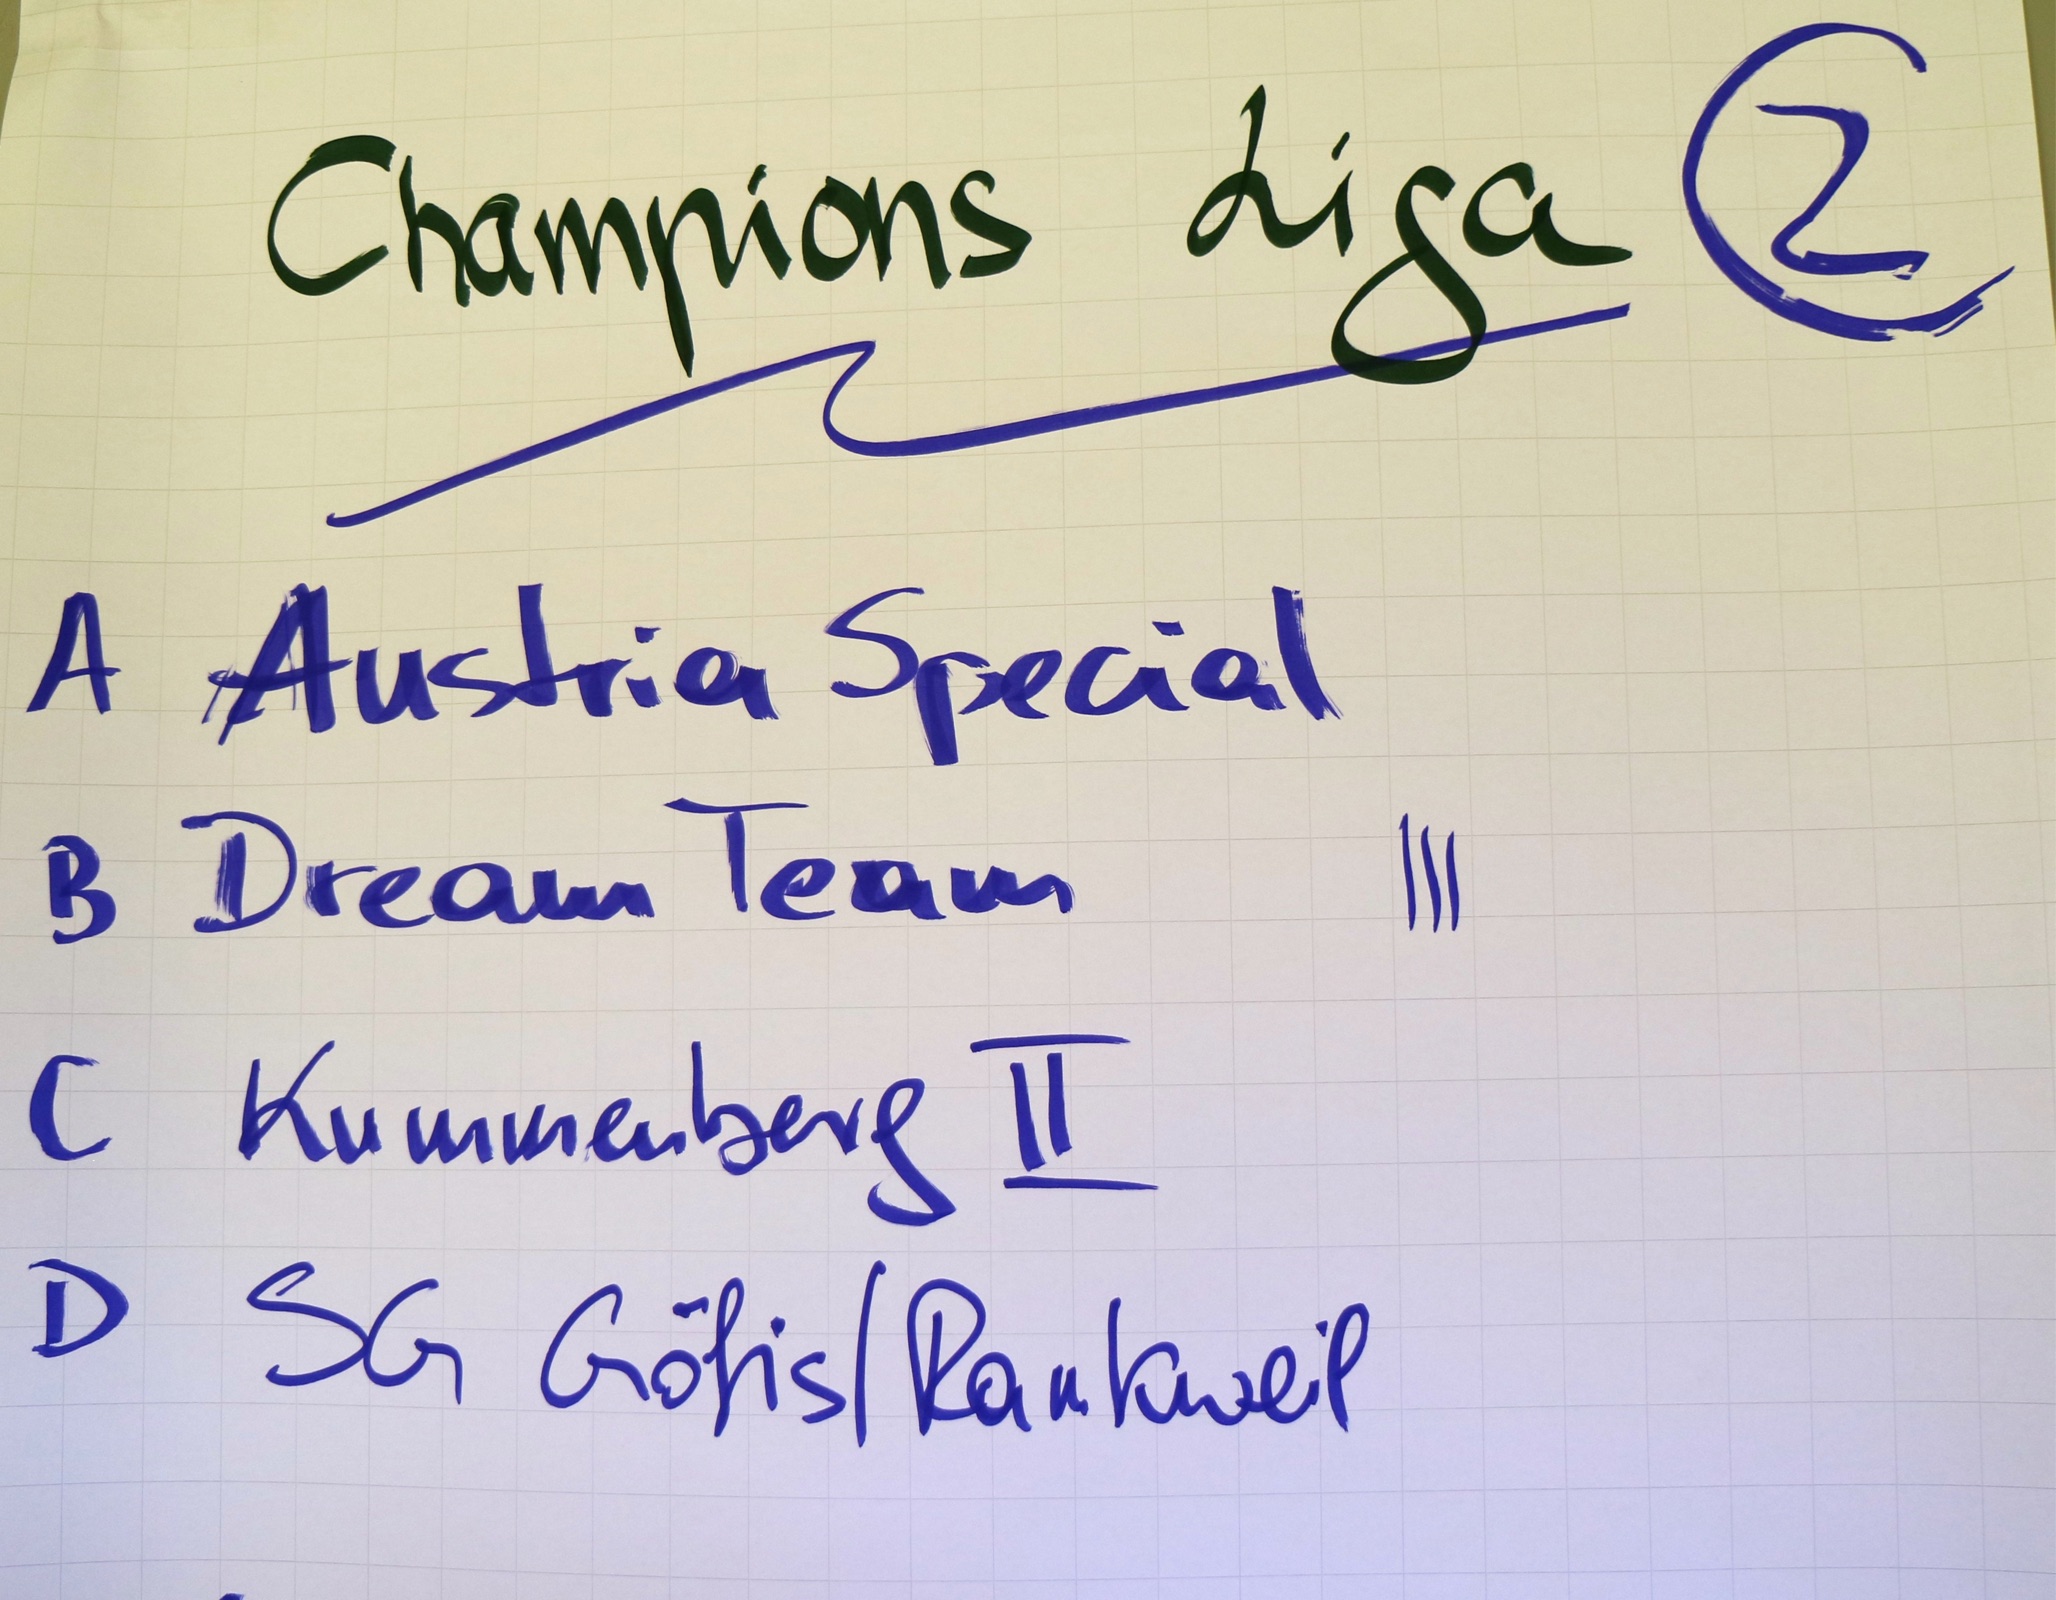 Champions Liga 2
A Austria Special
B Dream Team III
C Kummenberg II
D SG Göfis/Rankweil